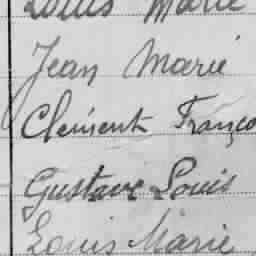 Louis Marie
Jean Marie
Clément Franço
Gustave Louis
Louis Marie